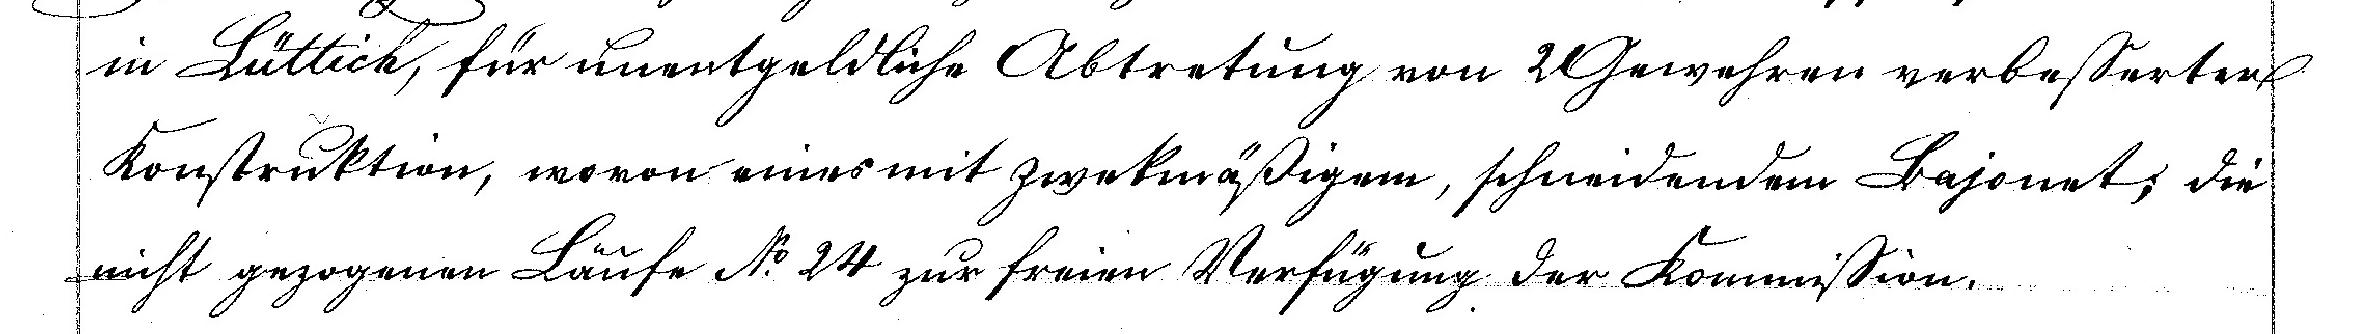 in Lüttich, für unentgeldliche Abtretung von 2 Gewehren verbesserter
Konstruktion, wovon eines mit zwekmäßigem, schneidendem Bajonet; die
nicht gezogenen Läufe No. 24 zur freien Verfügung der Kommission.